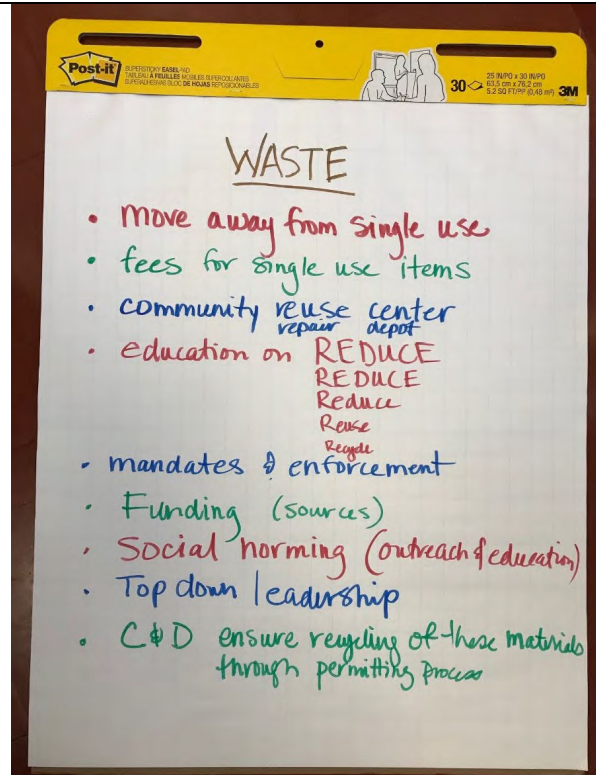 Post-it
SUPERSTICKY EASEL PAD
TABLEAU À FEUILLES MOBILES SUPERCOLLANTES
SUPERADHESIVAS BLOC DE HOJAS REPOSICIONABLES
30
25 IN/PO x 30 IN/PO
63,5 cm x 76,2 cm
5.2 SQ FT/PI² (0,48 m²)
3M
WASTE
• move away from single use
• fees for single use items
• community reuse center
repair depot
• education on REDUCE
REDUCE
Reduce
Reuse
Recycle
• mandates & enforcement
• Funding (sources)
• Social norming (outreach & education)
• Top down leadership
• C&D ensure recycling of these materials
through permitting process